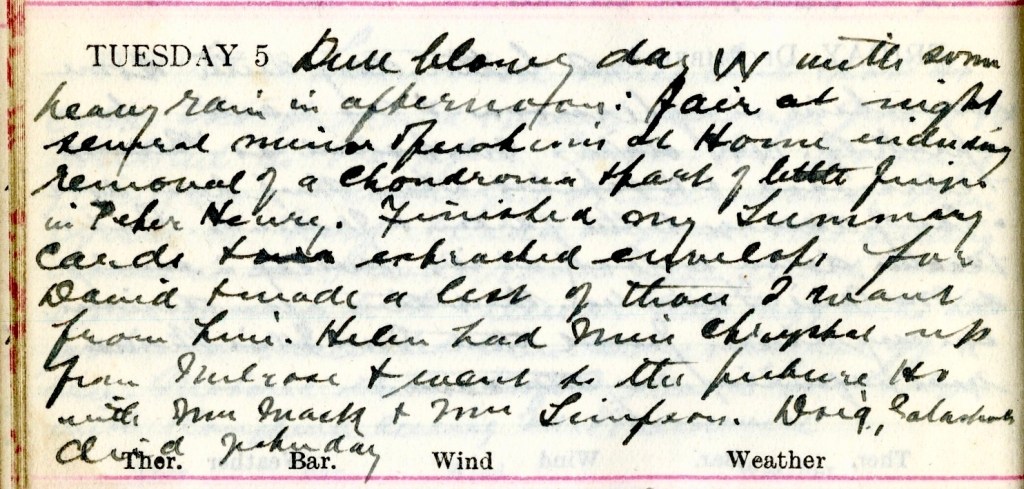 TUESDAY 5 Dull blowy day W with some
heavy rain in afternoon: fair at night
several minor operations at Home including
removal of a chondroma & part of little finger
in Peter Henry. Finished my Summary
Cards & extracted envelops for
David & made a list of those I want
from him. Helen had Miss Chrystal up
from Melrose & went to the picture Ho
with Mrs Mack & Mrs Simpson. Doig, Galashiels
died yesterday
Ther. Bar. Wind Weather